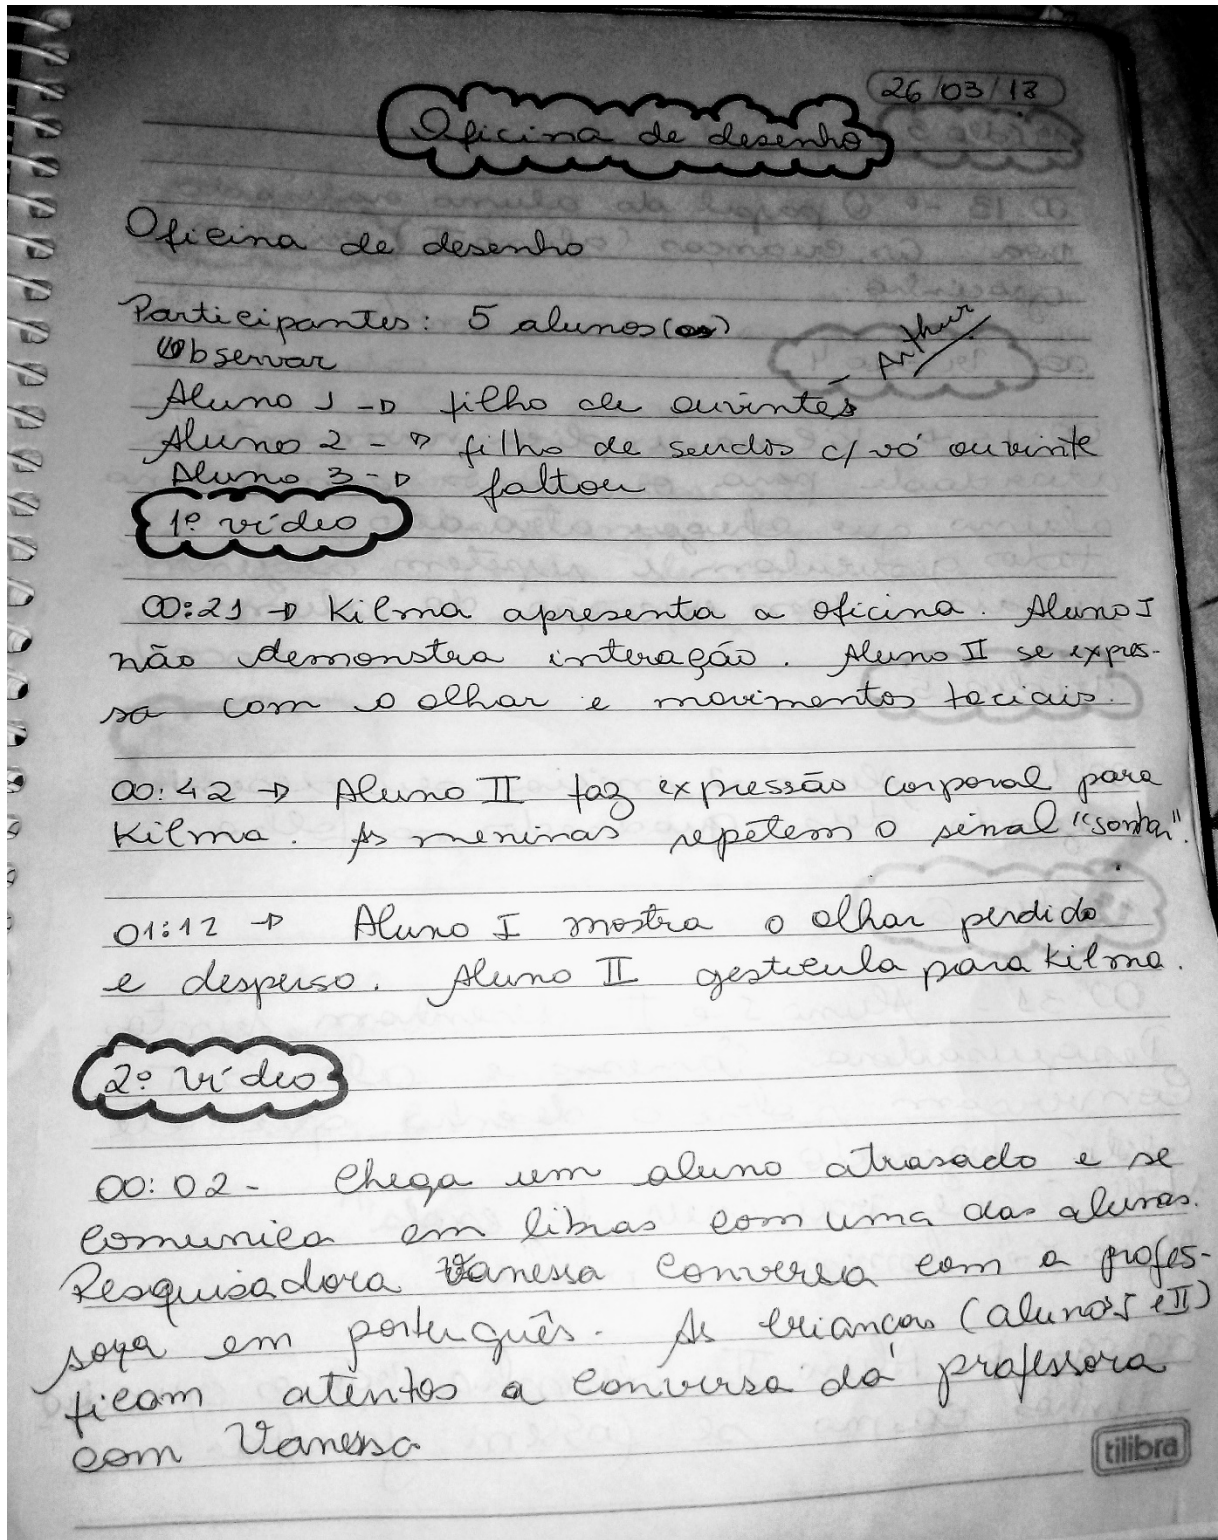 26/03/18
Oficina de desenho
Oficina de desenho
Participantes: 5 alunos (as)
Observar
Aluno 1 -> filho de ouvintes - Arthur
Aluno 2 -> filho de surdos c/ vó ouvinte
Aluno 3 -> faltou
1º vídeo
00:21 -> Kilma apresenta a oficina. Aluno I
não demonstra interação. Aluno II se expres-
sa com o olhar e movimentos faciais.
00:42 -> Aluno II faz expressão corporal para
Kilma. As meninas repetem o sinal "sonhar".
01:12 -> Aluno I mostra o olhar perdido
e desperso. Aluno II gesticula para Kilma.
2º vídeo
00:02 - Chega um aluno atrasado e se
comunica em libras com uma das alunas.
Pesquisadora Vanessa conversa com a profes-
sora em português. As crianças (alunos I e II)
ficam atentos a conversa da professora
com Vanessa
tilibra